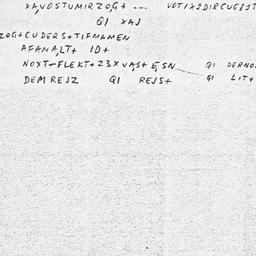 XAVOSTUMIRZOG+ --- VOTIX2DIRCUG81T
GI XAJ
ZOG+CUDERS+TIFMAMEN
AFANALT+ ID+
NOXT-FLEKT+Z3XVAS+ESN GI DERNO
DEMREJZ GI REJS+ GI LITV